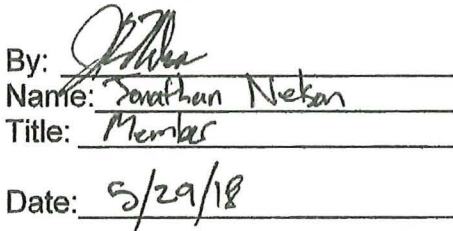 By:
Name: Jonathan Nelson
Title: Member
Date: 5/29/18